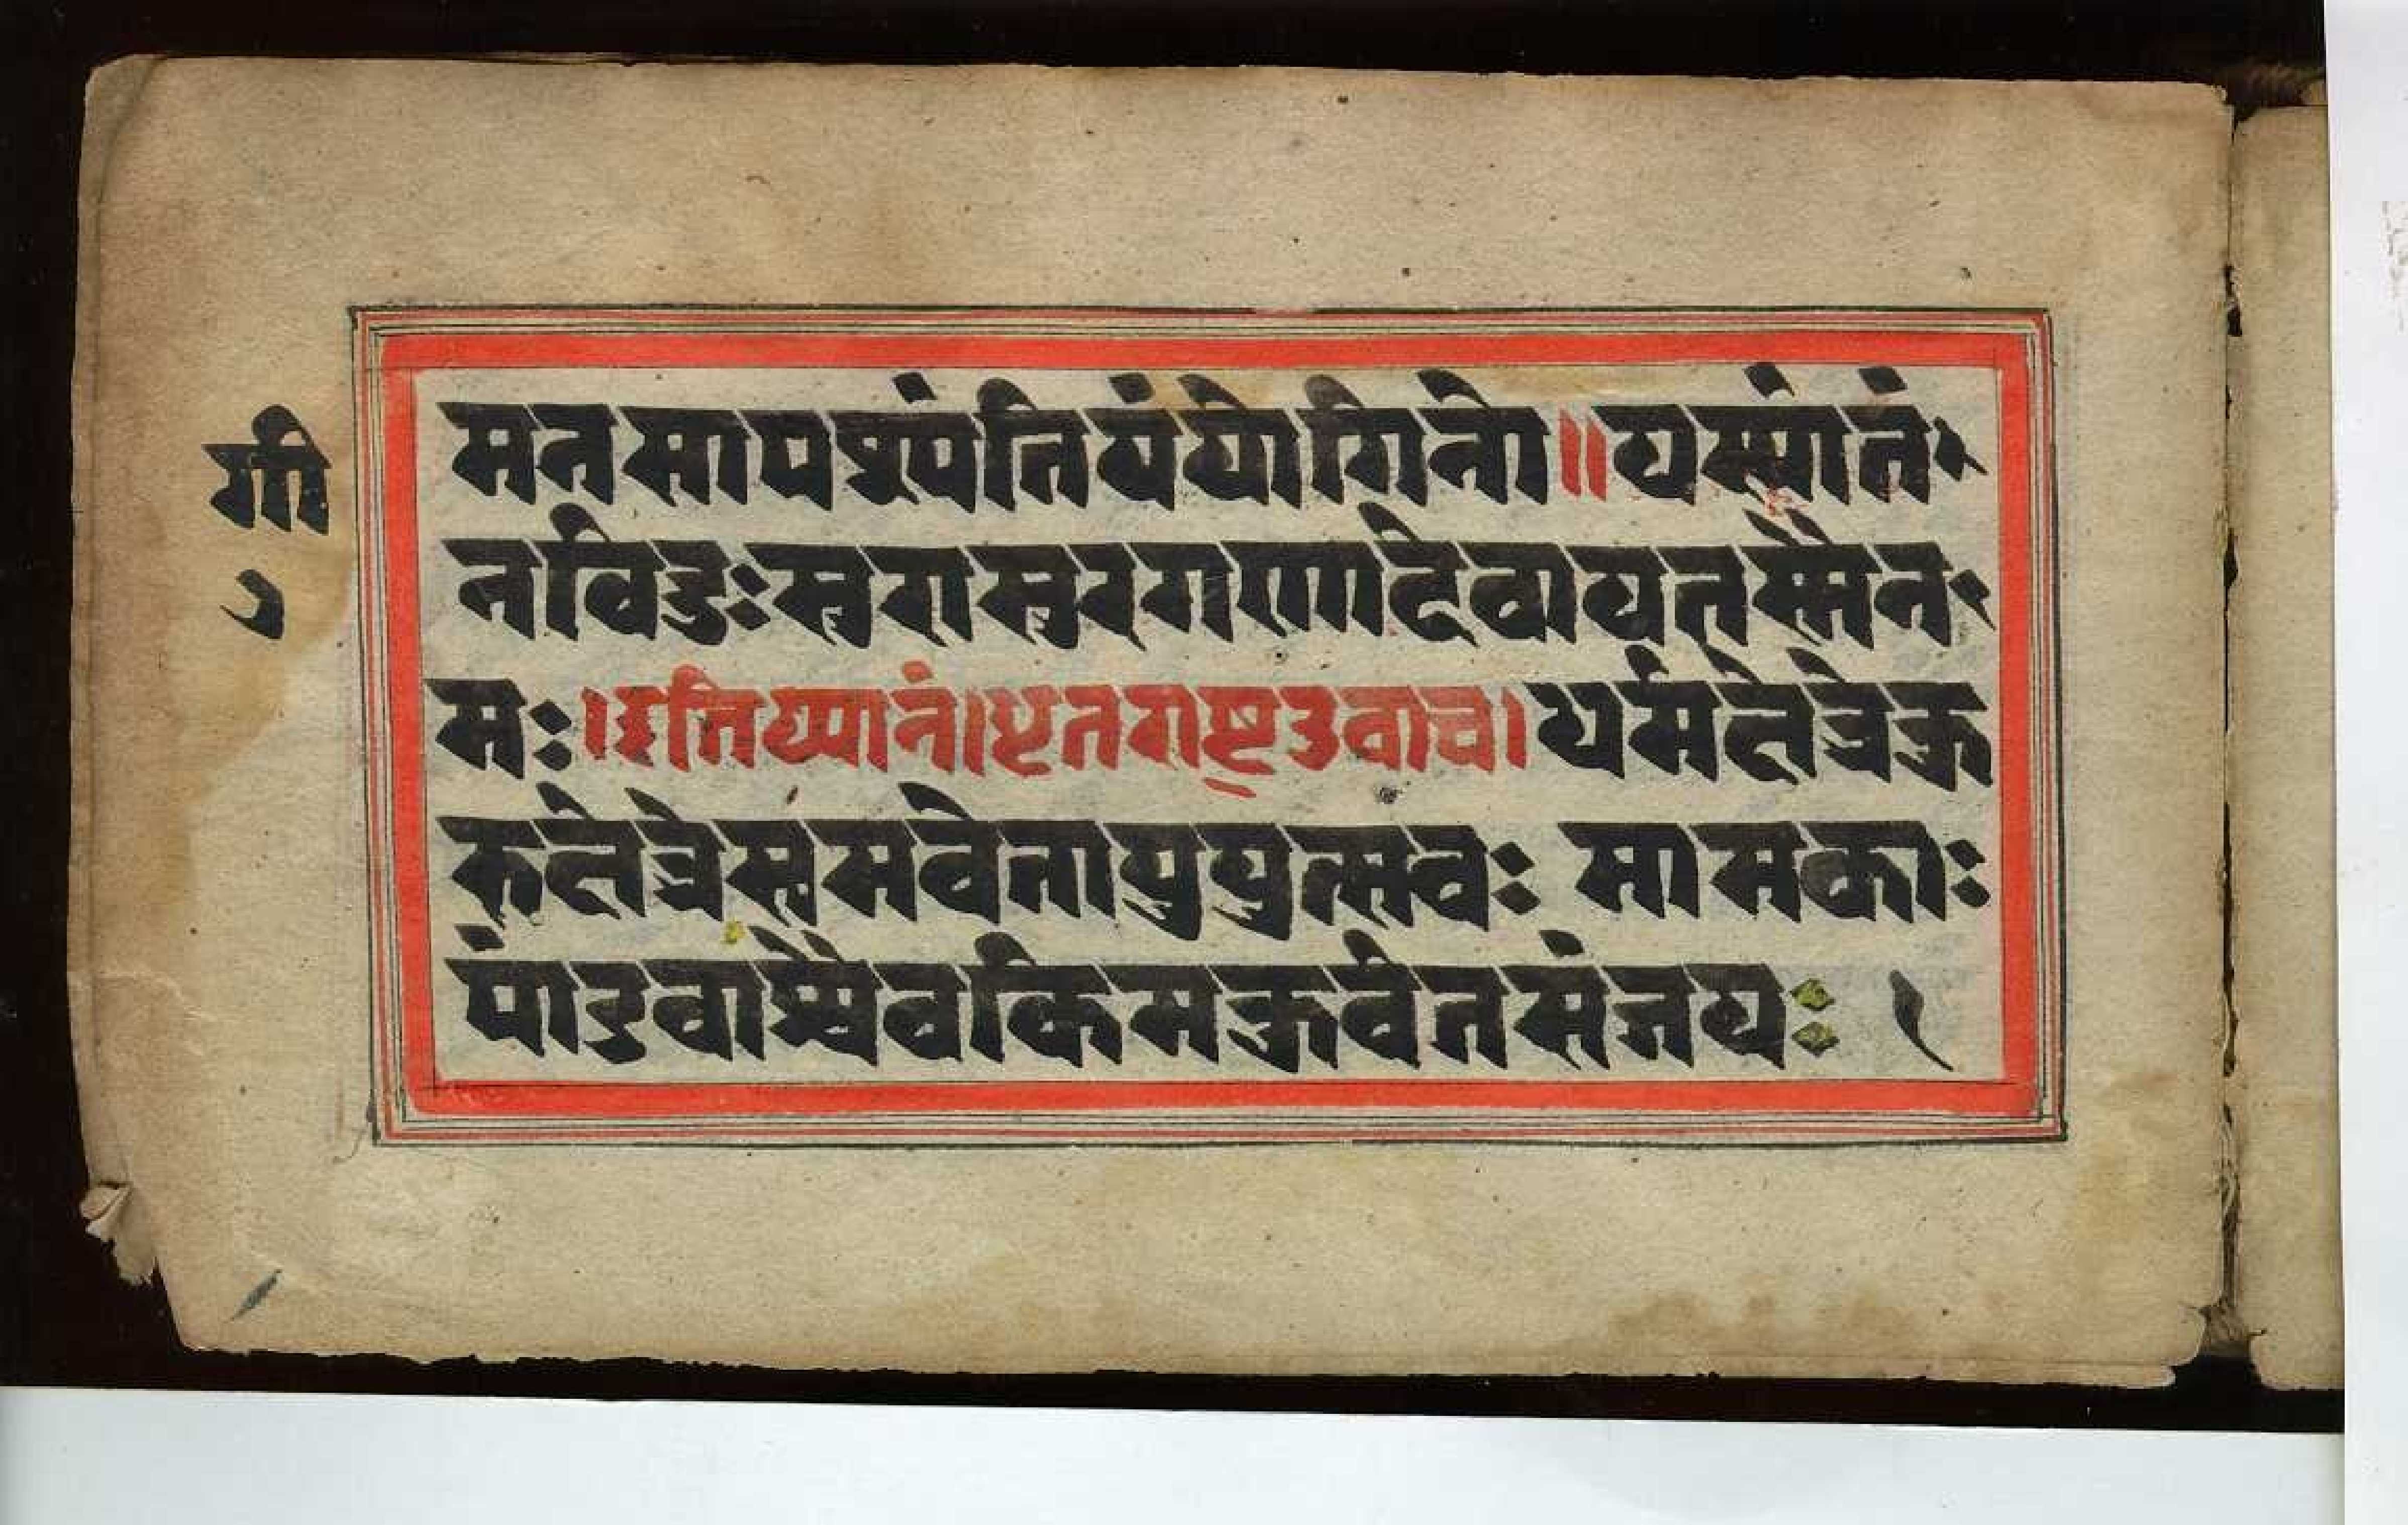 गी
७
मनसापश्यंतियंयोगिनो॥यस्यांतं
नविदुःसुरासुरगणादेवायतस्मैन
मः।इतिध्यानं।धृतराष्ट्रउवाच।धर्मक्षेत्रेकु
रुक्षेत्रेसमवेतायुयुत्सवः मामकाः
पांडवाश्चैवकिमकुर्वतसंजयः १